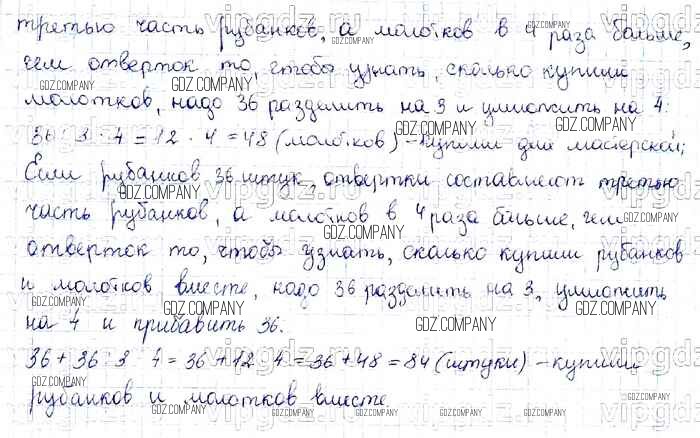 третью часть рубанков, а молотков в 4 раза больше,
чем отверток то, чтобы узнать, сколько купили
молотков, надо 36 разделить на 3 и умножить на 4:
36 : 3 · 4 = 12 · 4 = 48 (молотков) – купили для мастерской;
Если рубанков 36 штук, отвертки составляют третью
часть рубанков, а молотков в 4 раза больше, чем
отверток то, чтобы узнать, сколько купили рубанков
и молотков вместе, надо 36 разделить на 3, умножить
на 4 и прибавить 36.
36 + 36 : 3 · 4 = 36 + 12 · 4 = 36 + 48 = 84 (штуки) – купили
рубанков и молотков вместе.